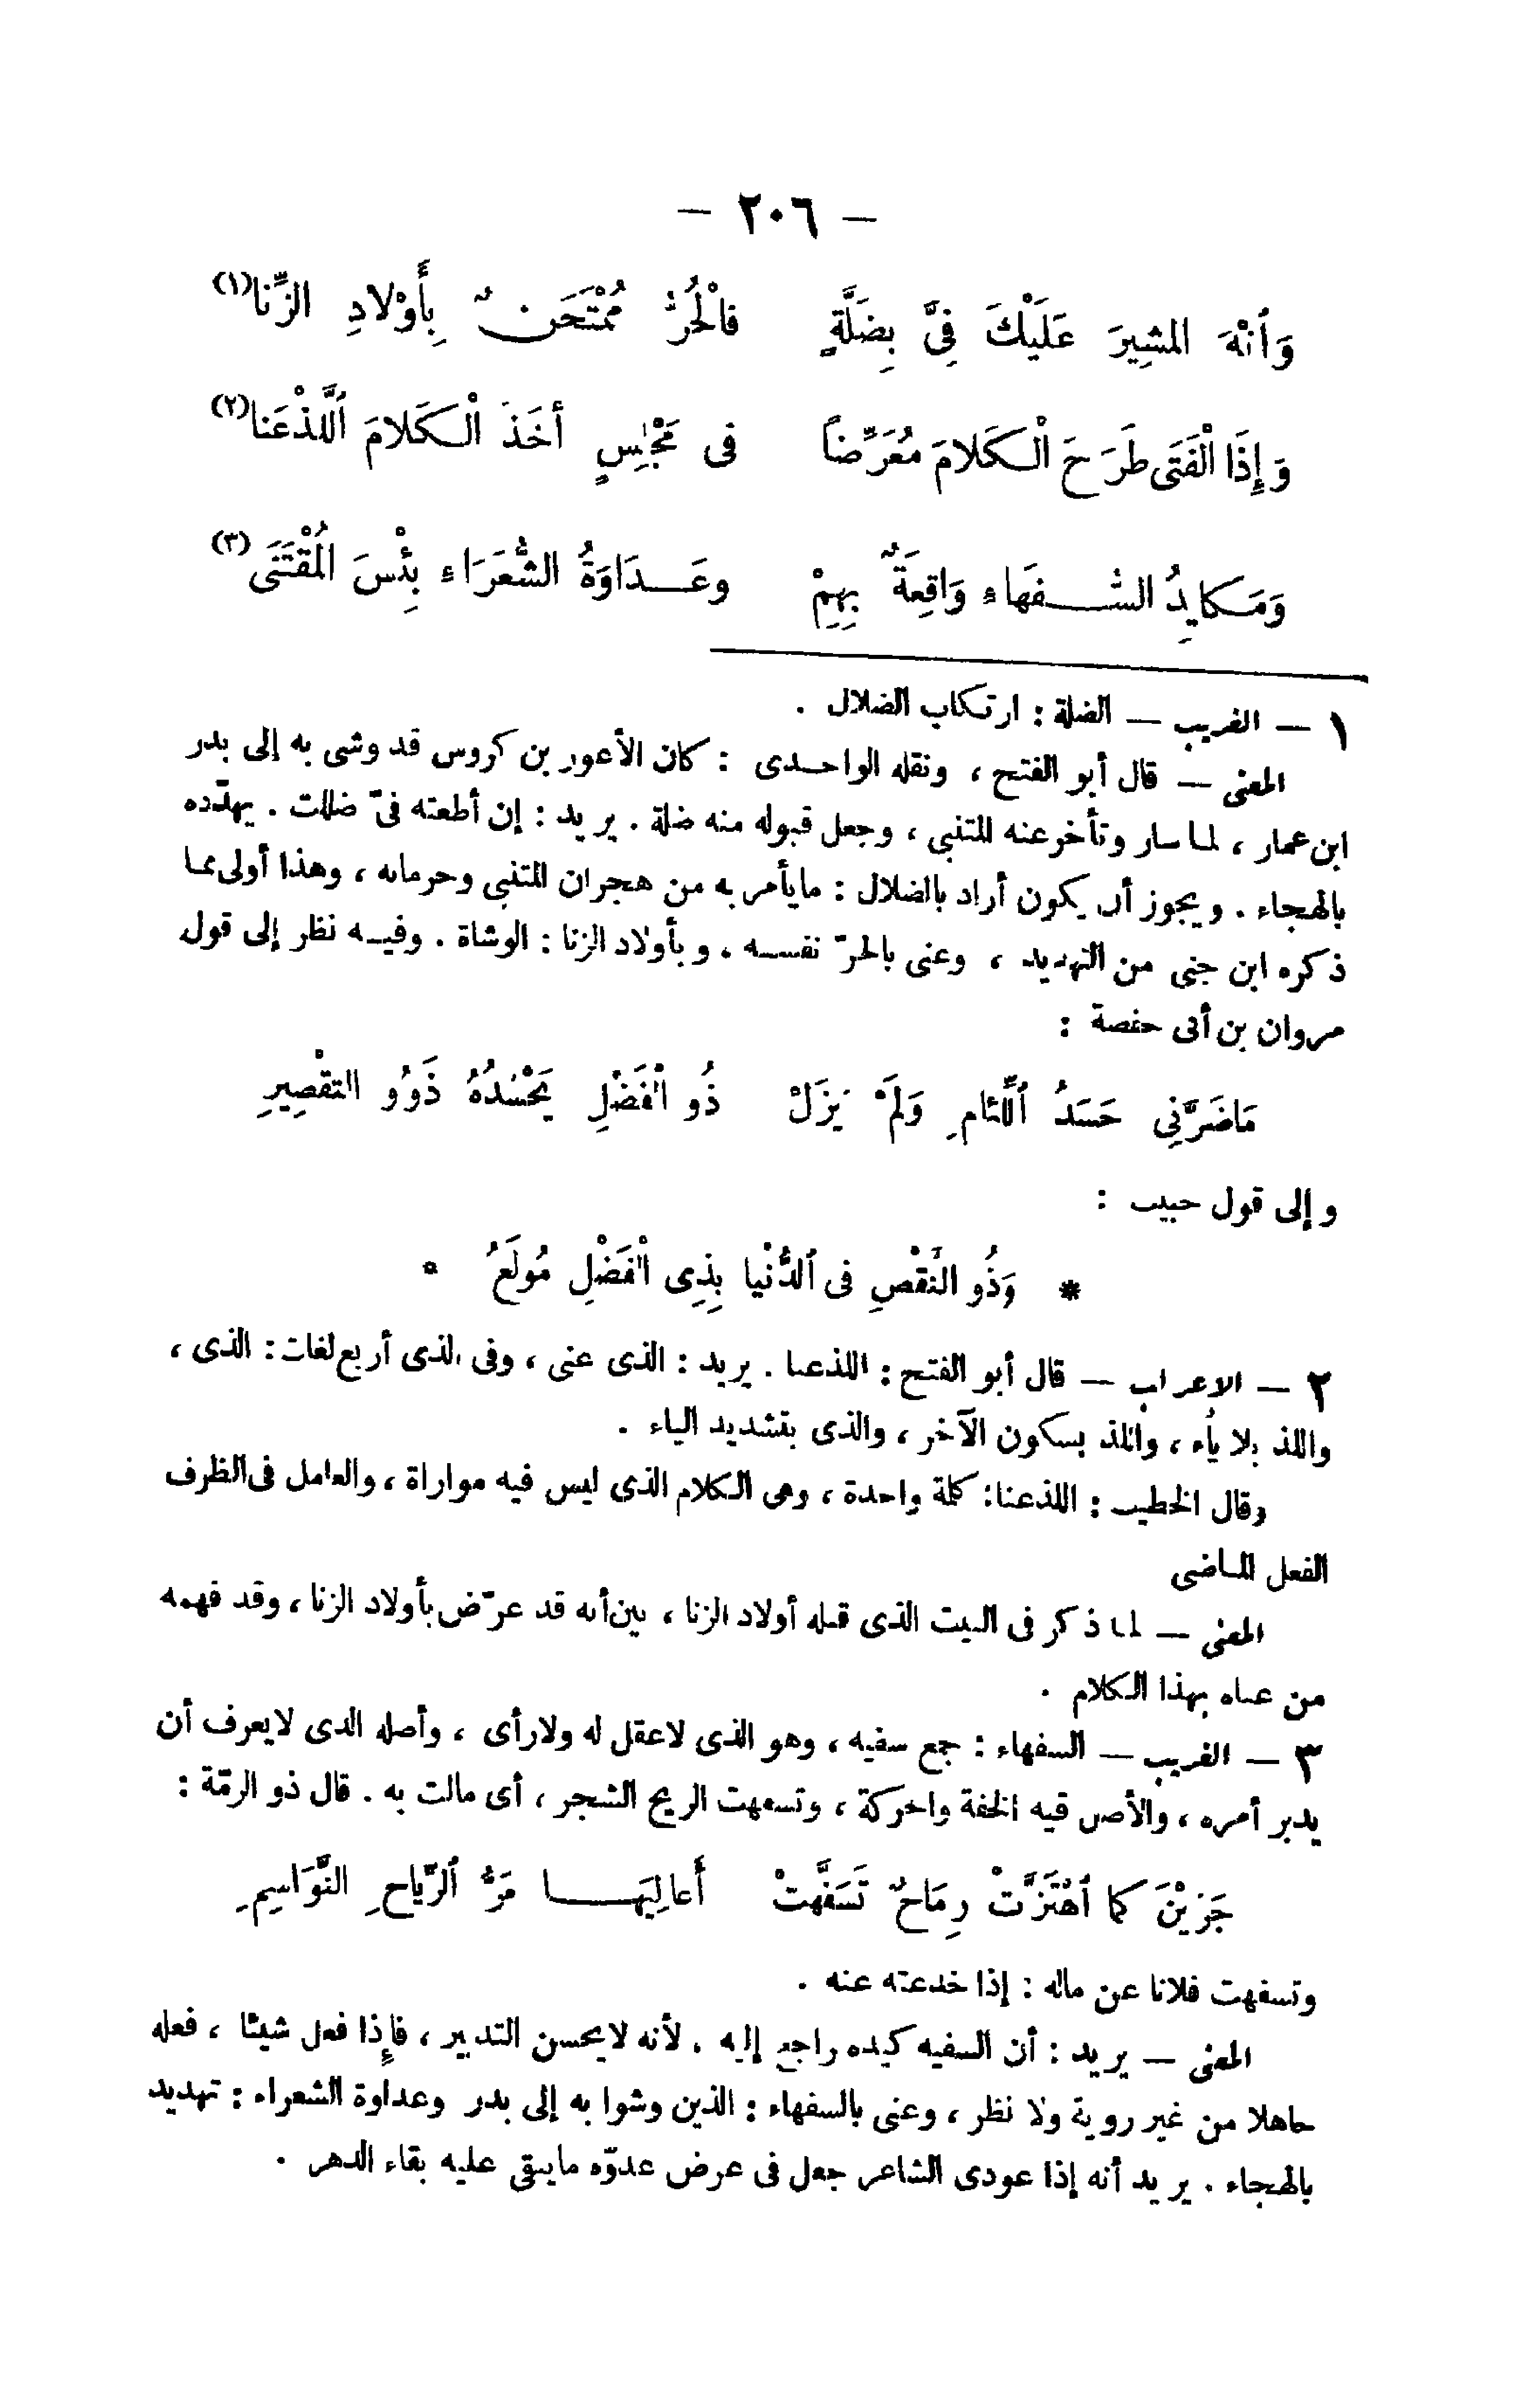 — ٢٠٦ —
وَأنْهَ المشِيرَ عَلَيْكَ فِىَّ بِضَلَّةٍ فالْحُرُّ مُمْتَحَنٌ بِأَوْلادِ الزِّنا(١)
وَإِذَا الْفَتَى طَرَحَ الْكَلامَ مُعَرِّضاً فى مَجْلِسٍ أخَذَ الْكَلامَ ٱللَّذْعَنا(٢)
وَمَكايِدُ السُّفَهاءِ وَاقِعَةٌ بِهِمْ وعَدَاوَةُ الشُّعَرَاءِ بِئْسَ الْمُقْتَنَى(٣)
١ — الغريب — الضلة : ارتكاب الضلال .
المعنى — قال أبو الفتح ، ونقله الواحدى : كان الأعور بن كروس قد وشى به إلى بدر
ابن عمار ، لما سار وتأخر عنه المتنبى ، وجعل قبوله منه ضلة . يريد : إن أطعته فىّ ضللت . يهدّده
بالهجاء . ويجوز أن يكون أراد بالضلال : مايأمر به من هجران المتنبى وحرمانه ، وهذا أولى مما
ذكره ابن جنى من التهديد ، وعنى بالحرّ نفسه . وبأولاد الزنا : الوشاة . وفيه نظر إلى قول
مروان بن أبى حفصة :
مَاضَرَّنِى حَسَدُ ٱللِّئام وَلَمْ يَزَلْ ذُو الْفَضْلِ يَحْسُدُهُ ذَوُو التقْصِيرِ
وإلى قول حبيب :
* وَذُو النَّقْصِ فى ٱلدُّنْيا بِذِى الْفَضْلِ مُولَعُ *
٢ — الاعراب — قال أبو الفتح : اللذعنا . يريد : الذى عنى ، وفى الذى أربع لغات : الذى ،
واللذ بلا ياء ، واللذ بسكون الآخر ، والذى بتشديد الياء .
وقال الخطيب : اللذعنا : كلمة واحدة ، وهى الكلام الذى ليس فيه مواراة ، والعامل فى الظرف
الفعل الماضى
المعنى — لما ذكر فى البيت الذى قبله أولاد الزنا ، بين أنه قد عرّض بأولاد الزنا ، وقد فهمه
من عناه بهذا الكلام .
٣ — الغريب — السفهاء : جمع سفيه ، وهو الذى لاعقل له ولارأى ، وأصله الذى لايعرف أن
يدبر أمره ، والأصل فيه الخفة والحركة ، وتسفهت الريح الشجر ، أى مالت به . قال ذو الرمّة :
جَرَيْنَ كما ٱهْتَزَّتْ رِمَاحٌ تَسَفَّهتْ أَعالِيَها مَرُّ ٱلرِّياحِ النَّوَاسِمِ
وتسفهت فلانا عن ماله : إذا خدعته عنه .
المعنى — يريد : أن السفيه كيده راجع إليه . لأنه لايحسن التدبير ، فإذا فعل شيئا ، فعله
جاهلا من غير روية ولا نظر ، وعنى بالسفهاء : الذين وشوا به إلى بدر وعداوة الشعراء : تهديد
بالهجاء . يريد أنه إذا عودى الشاعر جعل فى عرض عدوّه مايبقى عليه بقاء الدهر .